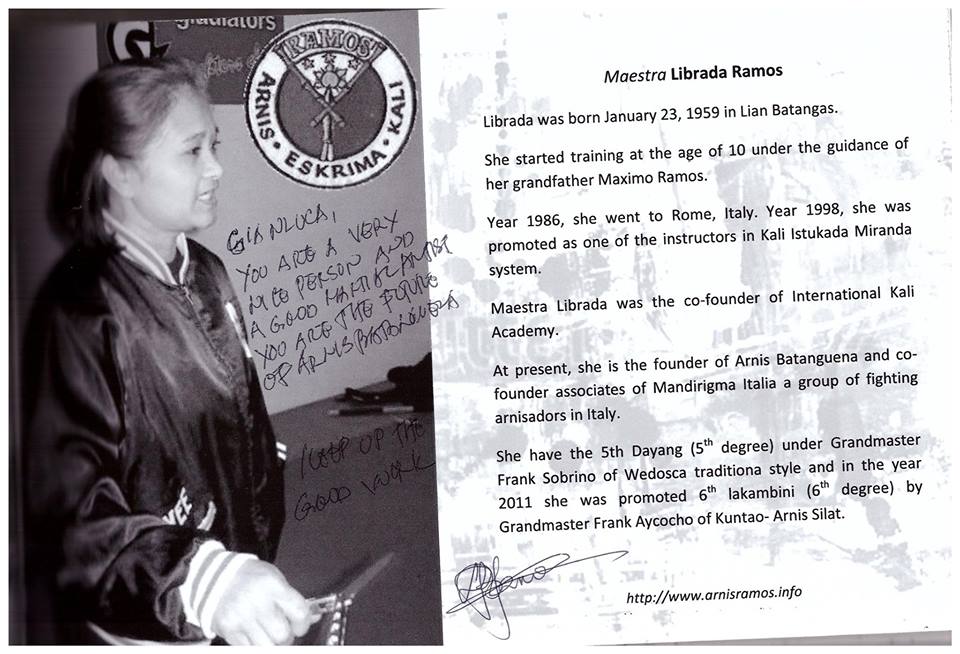 gladiators
RAMOS
ARNIS · ESKRIMA · KALI
GIANLUCA,
YOU ARE A VERY
NICE PERSON AND
A GOOD MARTIAL ARTIST
YOU ARE THE FUTURE
OF ARNIS BATANGUENA
KEEP UP THE
GOOD WORK
Maestra Librada Ramos
Librada was born January 23, 1959 in Lian Batangas.
She started training at the age of 10 under the guidance of
her grandfather Maximo Ramos.
Year 1986, she went to Rome, Italy. Year 1998, she was
promoted as one of the instructors in Kali Istukada Miranda
system.
Maestra Librada was the co-founder of International Kali
Academy.
At present, she is the founder of Arnis Batanguena and co-
founder associates of Mandirigma Italia a group of fighting
arnisadors in Italy.
She have the 5th Dayang (5th degree) under Grandmaster
Frank Sobrino of Wedosca traditiona style and in the year
2011 she was promoted 6th lakambini (6th degree) by
Grandmaster Frank Aycocho of Kuntao- Arnis Silat.
http://www.arnisramos.info